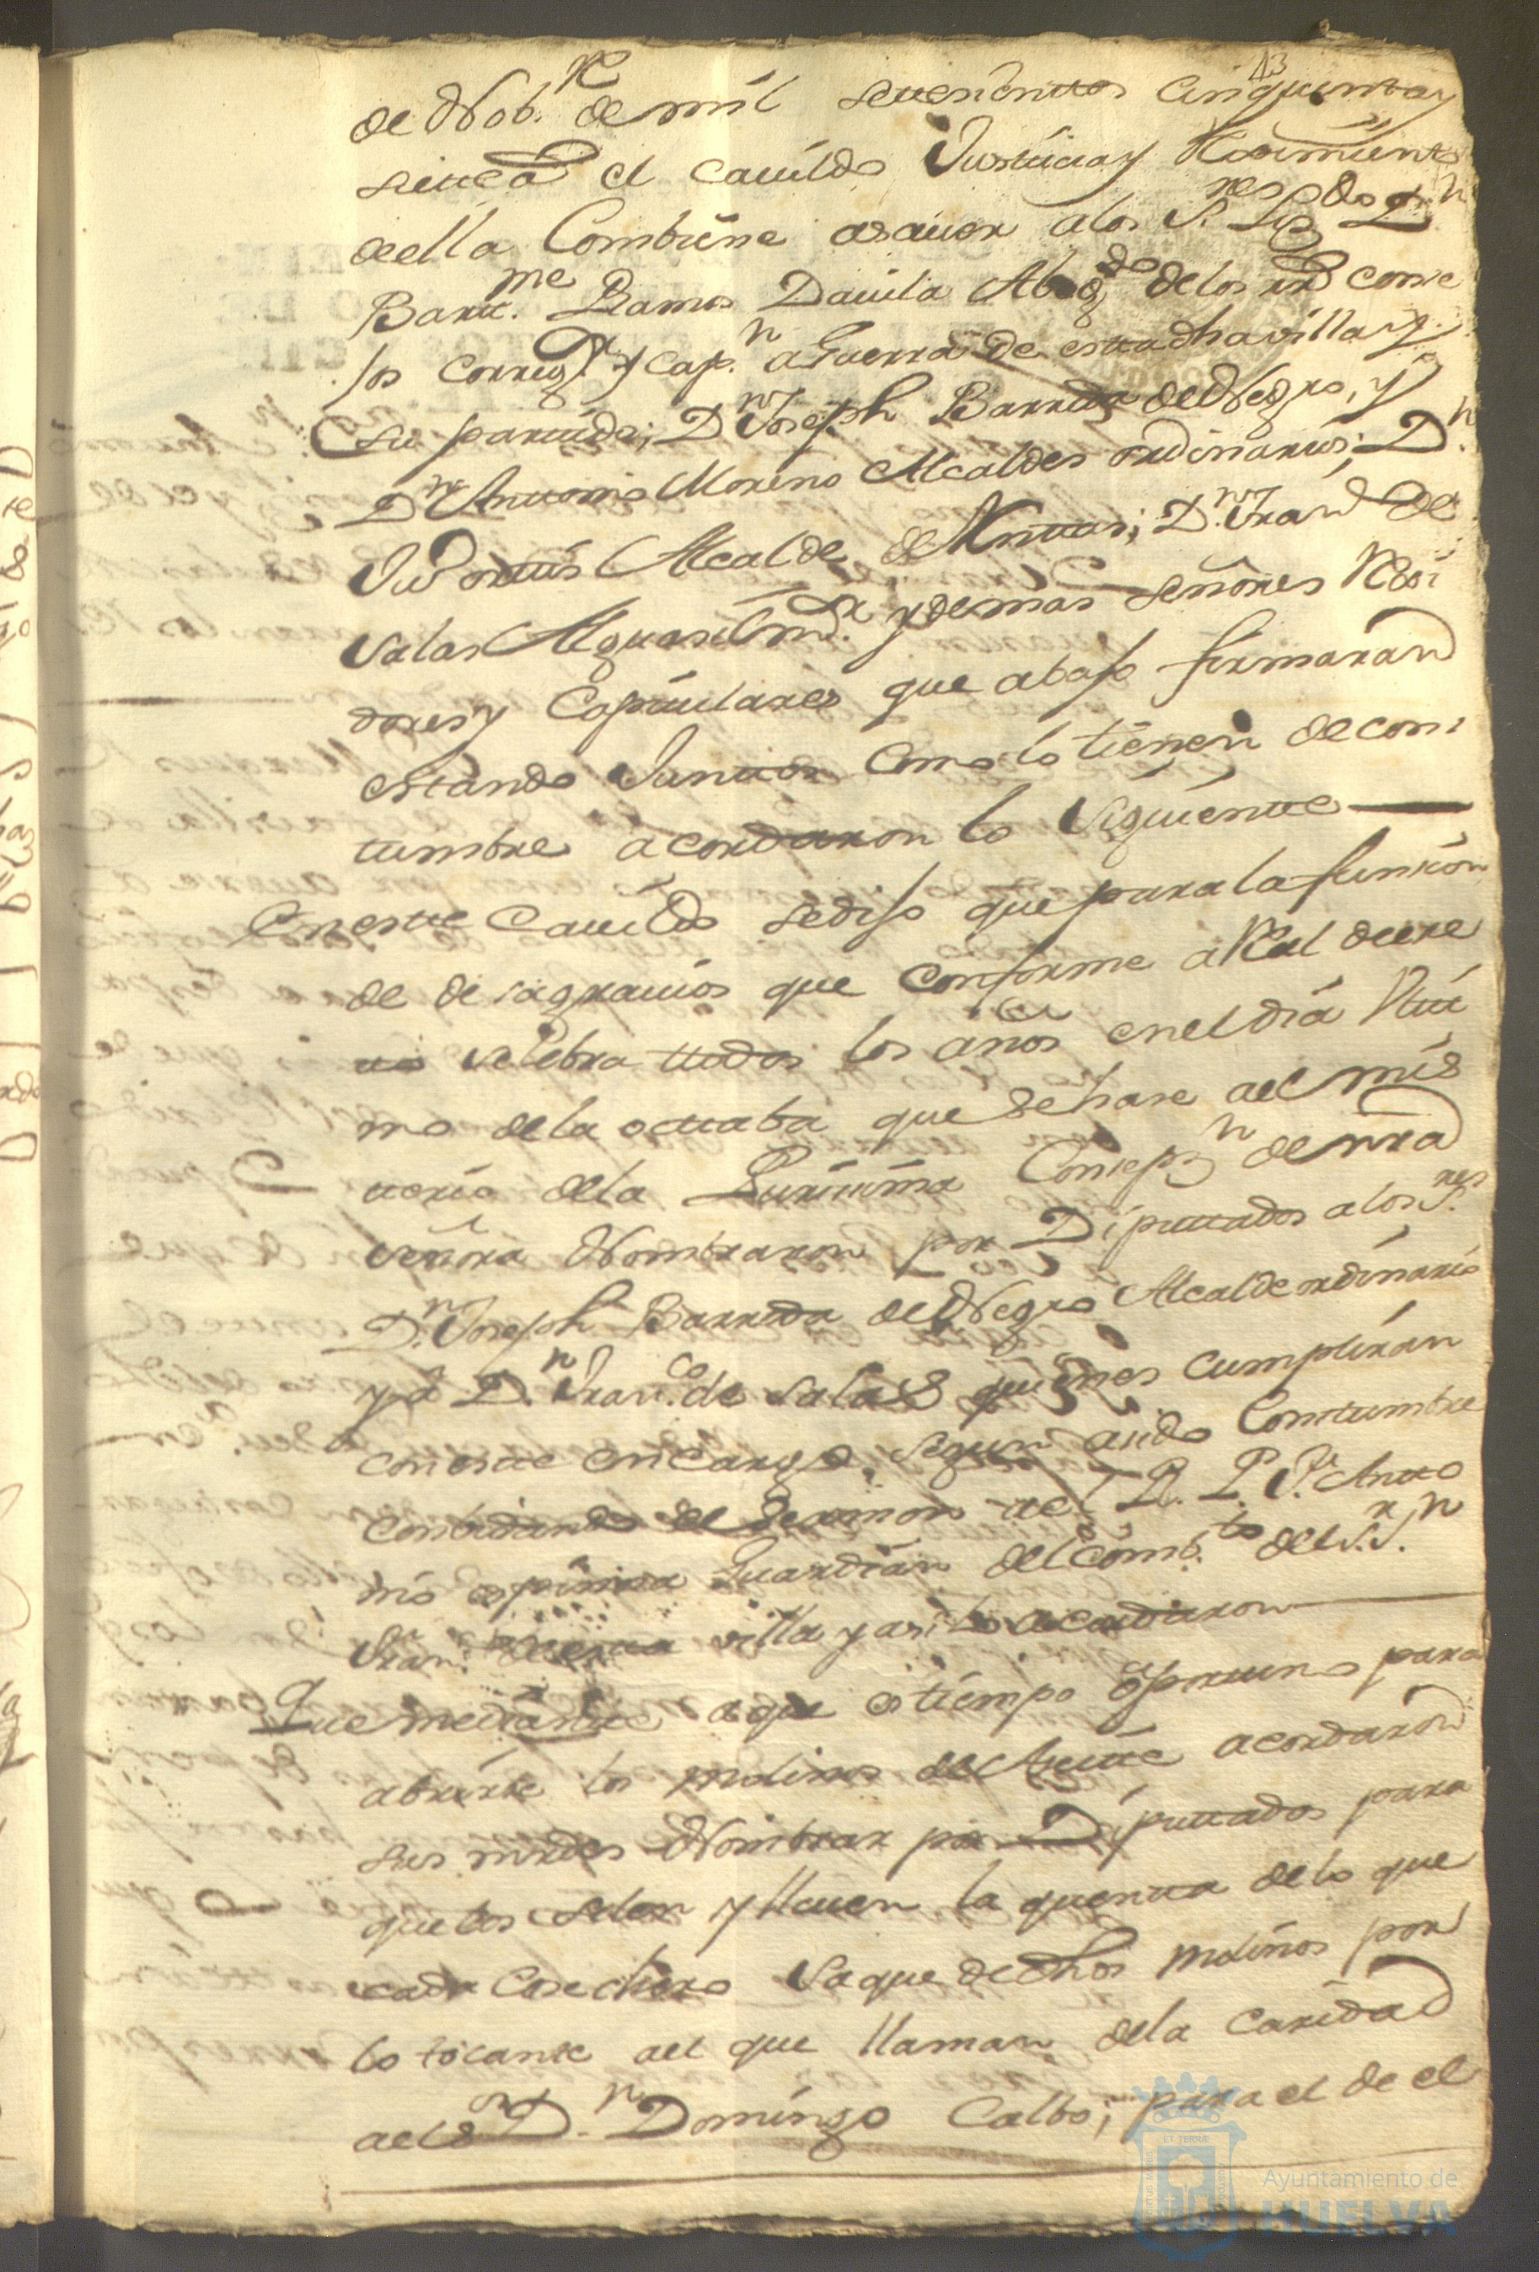 13
de Nob.re de mil setesientos cinquenta y
siete a el cauildo Justicia y Reximiento
de ella Combiene asauer a los S.res Liz.do D.n
Barte.me Ramos Dauila Abog.do de los rs conse
jos correg.r y cap.n a Guerra de esta dha villa y
su partido; D.n Joseph Barreda de Negro, y
D.n Antonio Moreno Alcaldes ordinarios; D.n
Alcalde de Millas; D.n Fran.co de
Salas Alguasil m.or y demas señores Rexi
dores y Capitulares que abajo firmaran
estando Juntos como lo tienen de cos
tumbre acordaron lo siguiente
En este Cauildo se dijo que para la funsion
de desagrauios que conforme a Real decre
to se selebra ttodos los años en el dia Ulti
mo de la octaba que se hase a el mis
terio de la Purisima Consepz.n de nra
señora Nombraron por Diputtados a los S.res
D.n Joseph Barreda de Negro Alcalde ordinario
y a D.n Fran.co de Salas quienes cumpliran
con este encargo, segun a sido Constumbre
combidando el sermon a el R. P. F.r Anto
nio Guardian del Comb.to del S.r S.n
Fran.co de esta villa y asi lo acordaron
Que mediante a que es tiempo oportuno para
abrirse los molinos de Aseite acordaron
sus mrdes Nombrar por Diputtados para
que los selen y lleuen la quenta de lo que
cada Cosechero saque de dhos molinos por
lo tocante a el que llaman de la caridad
a el s.or D.n Domingo Calbo; para el de el
Ayuntamiento de
HUELVA